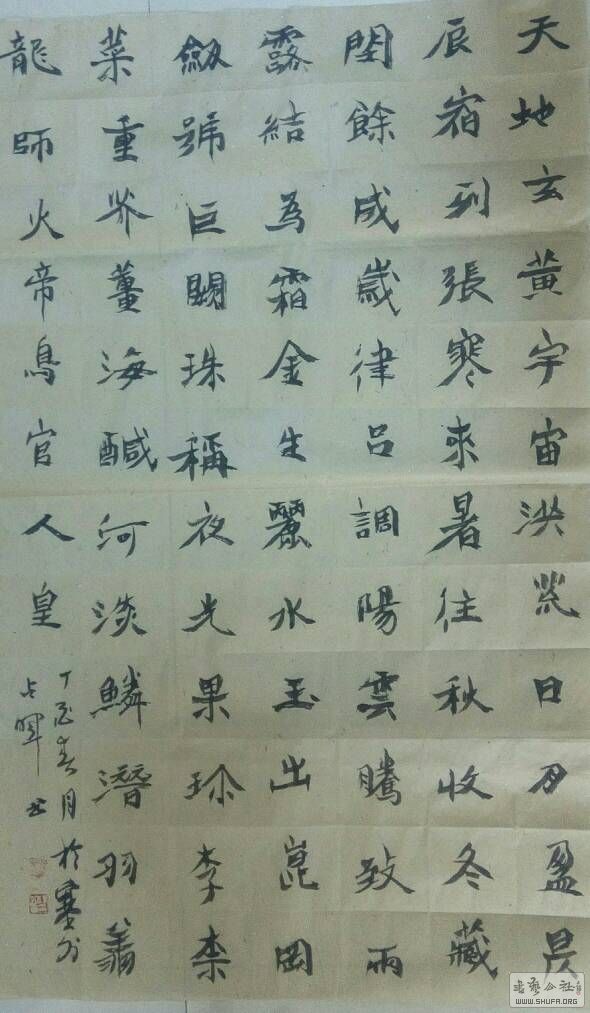 天地玄黄宇宙洪荒日月盈昃
辰宿列張寒來暑往秋收冬藏
閏餘成歲律吕調陽雲騰致雨
露結為霜金生麗水玉出崑岡
劔號巨闕珠稱夜光果珍李柰
菜重芥薑海鹹河淡鱗潛羽翔
龍師火帝鳥官人皇
丁酉春月於墨
占暉書
書藝公社
WWW.SHUFA.ORG